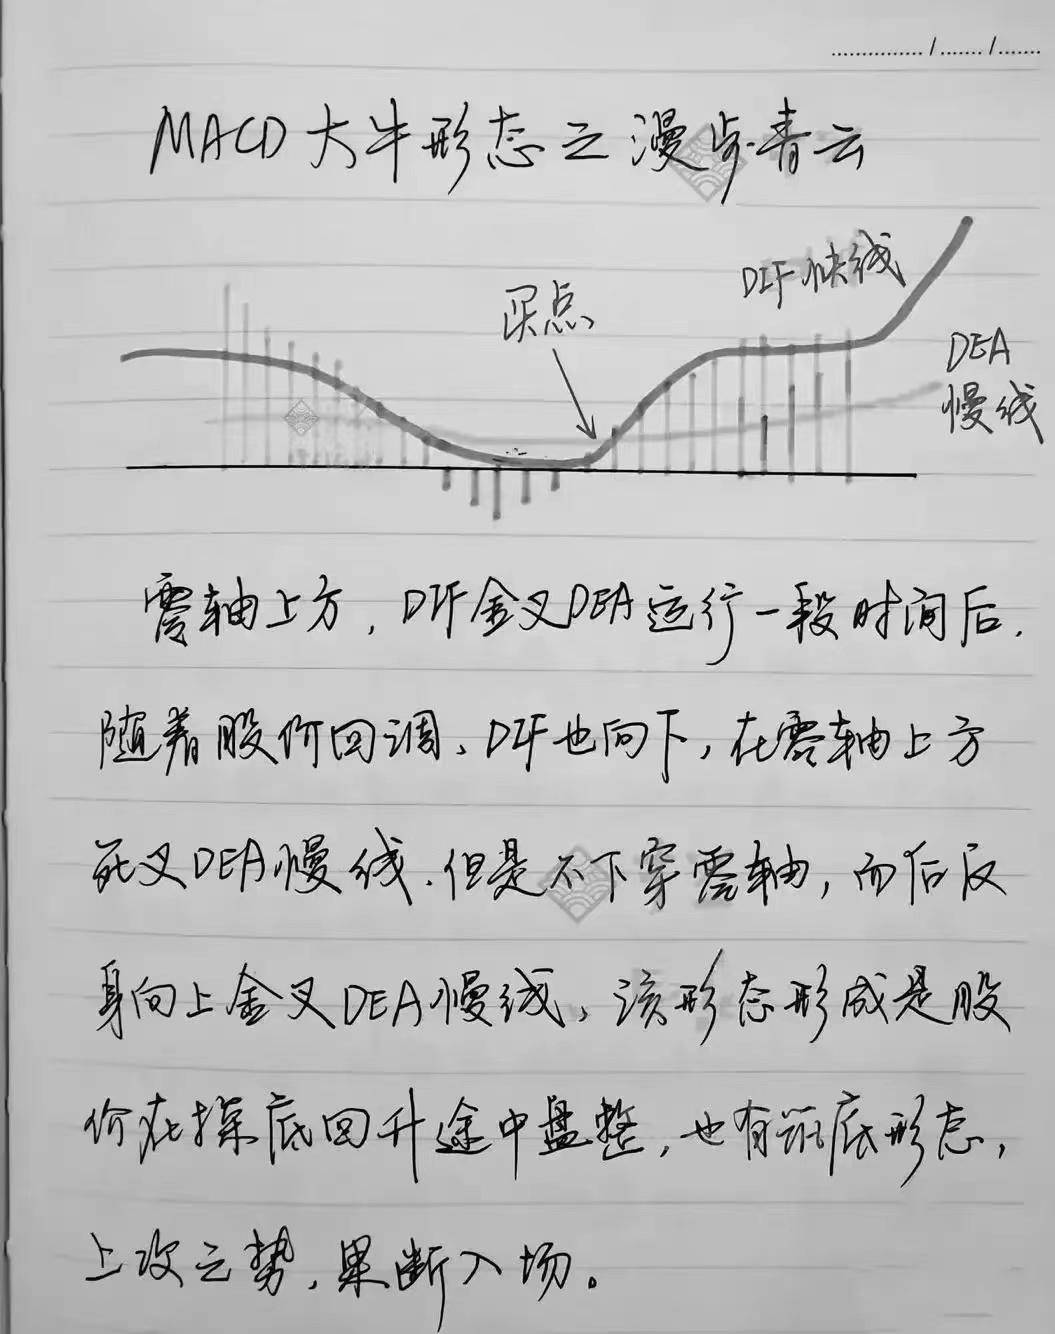 MACD大牛形态之漫步青云
买点
DIF快线
DEA
慢线
零轴上方，DIF金叉DEA运行一段时间后，
随着股价回调、DIF也向下，在零轴上方
死叉DEA慢线．但是不下穿零轴，而后反
身向上金叉DEA慢线、该形态形成是股
价在探底回升途中盘整，也有筑底形态，
上攻之势，果断入场。